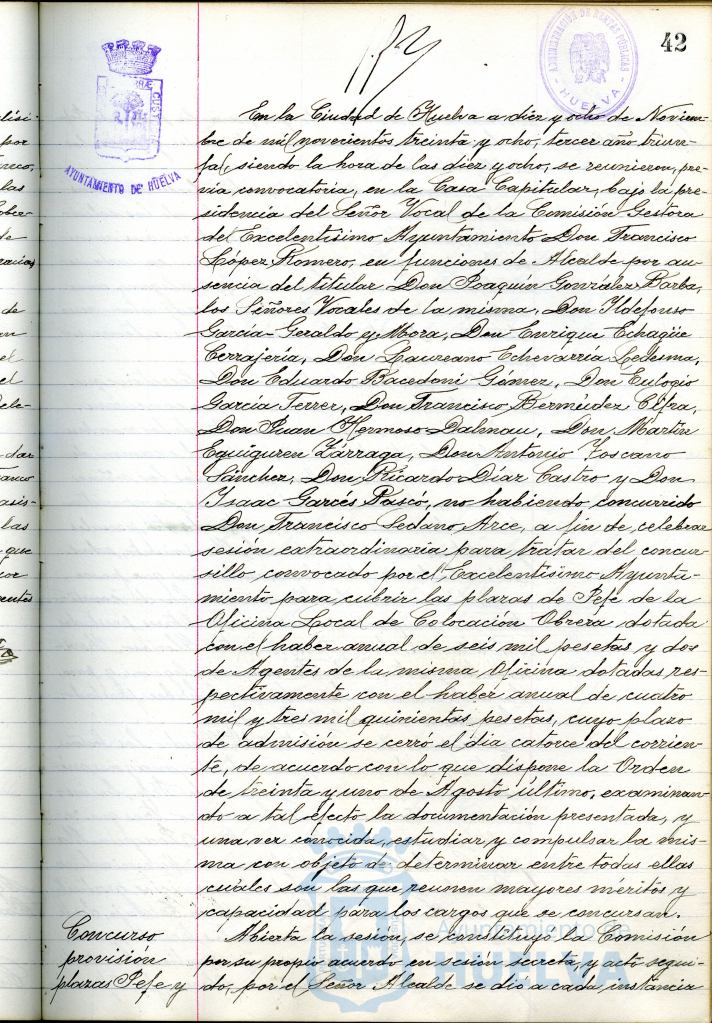 42
ADMINISTRACIÓN DE RENTAS PÚBLICAS
HUELVA
AYUNTAMIENTO DE HUELVA
En la Ciudad de Huelva a diez y ocho de Noviem-
bre de mil novecientos treinta y ocho, tercer año triun-
fal, siendo la hora de las diez y ocho, se reunieron, pre-
via convocatoria, en la Casa Capitular, bajo la pre-
sidencia del Señor Vocal de la Comisión Gestora
del Excelentísimo Ayuntamiento Don Francisco
López Romero, en funciones de Alcalde por au-
sencia del titular Don Joaquín González Barba,
los Señores Vocales de la misma, Don Ildefonso
García-Geraldo y Mora, Don Enrique Echagüe
Cerrajería, Don Laureano Echevarría Ledesma,
Don Eduardo Bacedoni Gómez, Don Eulogio
García Ferrer, Don Francisco Bermúdez Cifra,
Don Juan Hermoso Dalmau, Don Martín
Eguiguren Zárraga, Don Antonio Toscano
Sánchez, Don Ricardo Díaz Castro y Don
Isaac Garcés Pascó, no habiendo concurrido
Don Francisco Sedano Arce, a fin de celebrar
sesión extraordinaria para tratar del concur-
sillo convocado por el Excelentísimo Ayunta-
miento para cubrir las plazas de Jefe de la
Oficina Local de Colocación Obrera dotada
con el haber anual de seis mil pesetas y dos
de Agentes de la misma Oficina dotadas res-
pectivamente con el haber anual de cuatro
mil y tres mil quinientas pesetas, cuyo plazo
de admisión se cerró el día catorce del corrien-
te, de acuerdo con lo que dispone la Orden
de treinta y uno de Agosto último, examinan-
do a tal efecto la documentación presentada, y
una vez conocida, estudiar y compulsar la mis-
ma con objeto de determinar entre todas ellas
cuáles son las que reunen mayores méritos y
capacidad para los cargos que se concursan.
Concurso
provisión
plazas Jefe y
Abierta la sesión, se constituyó la Comisión
por su propio acuerdo en sesión secreta, y acto segui-
do, por el Señor Alcalde se dió a cada instancia
Ayuntamiento de
HUELVA